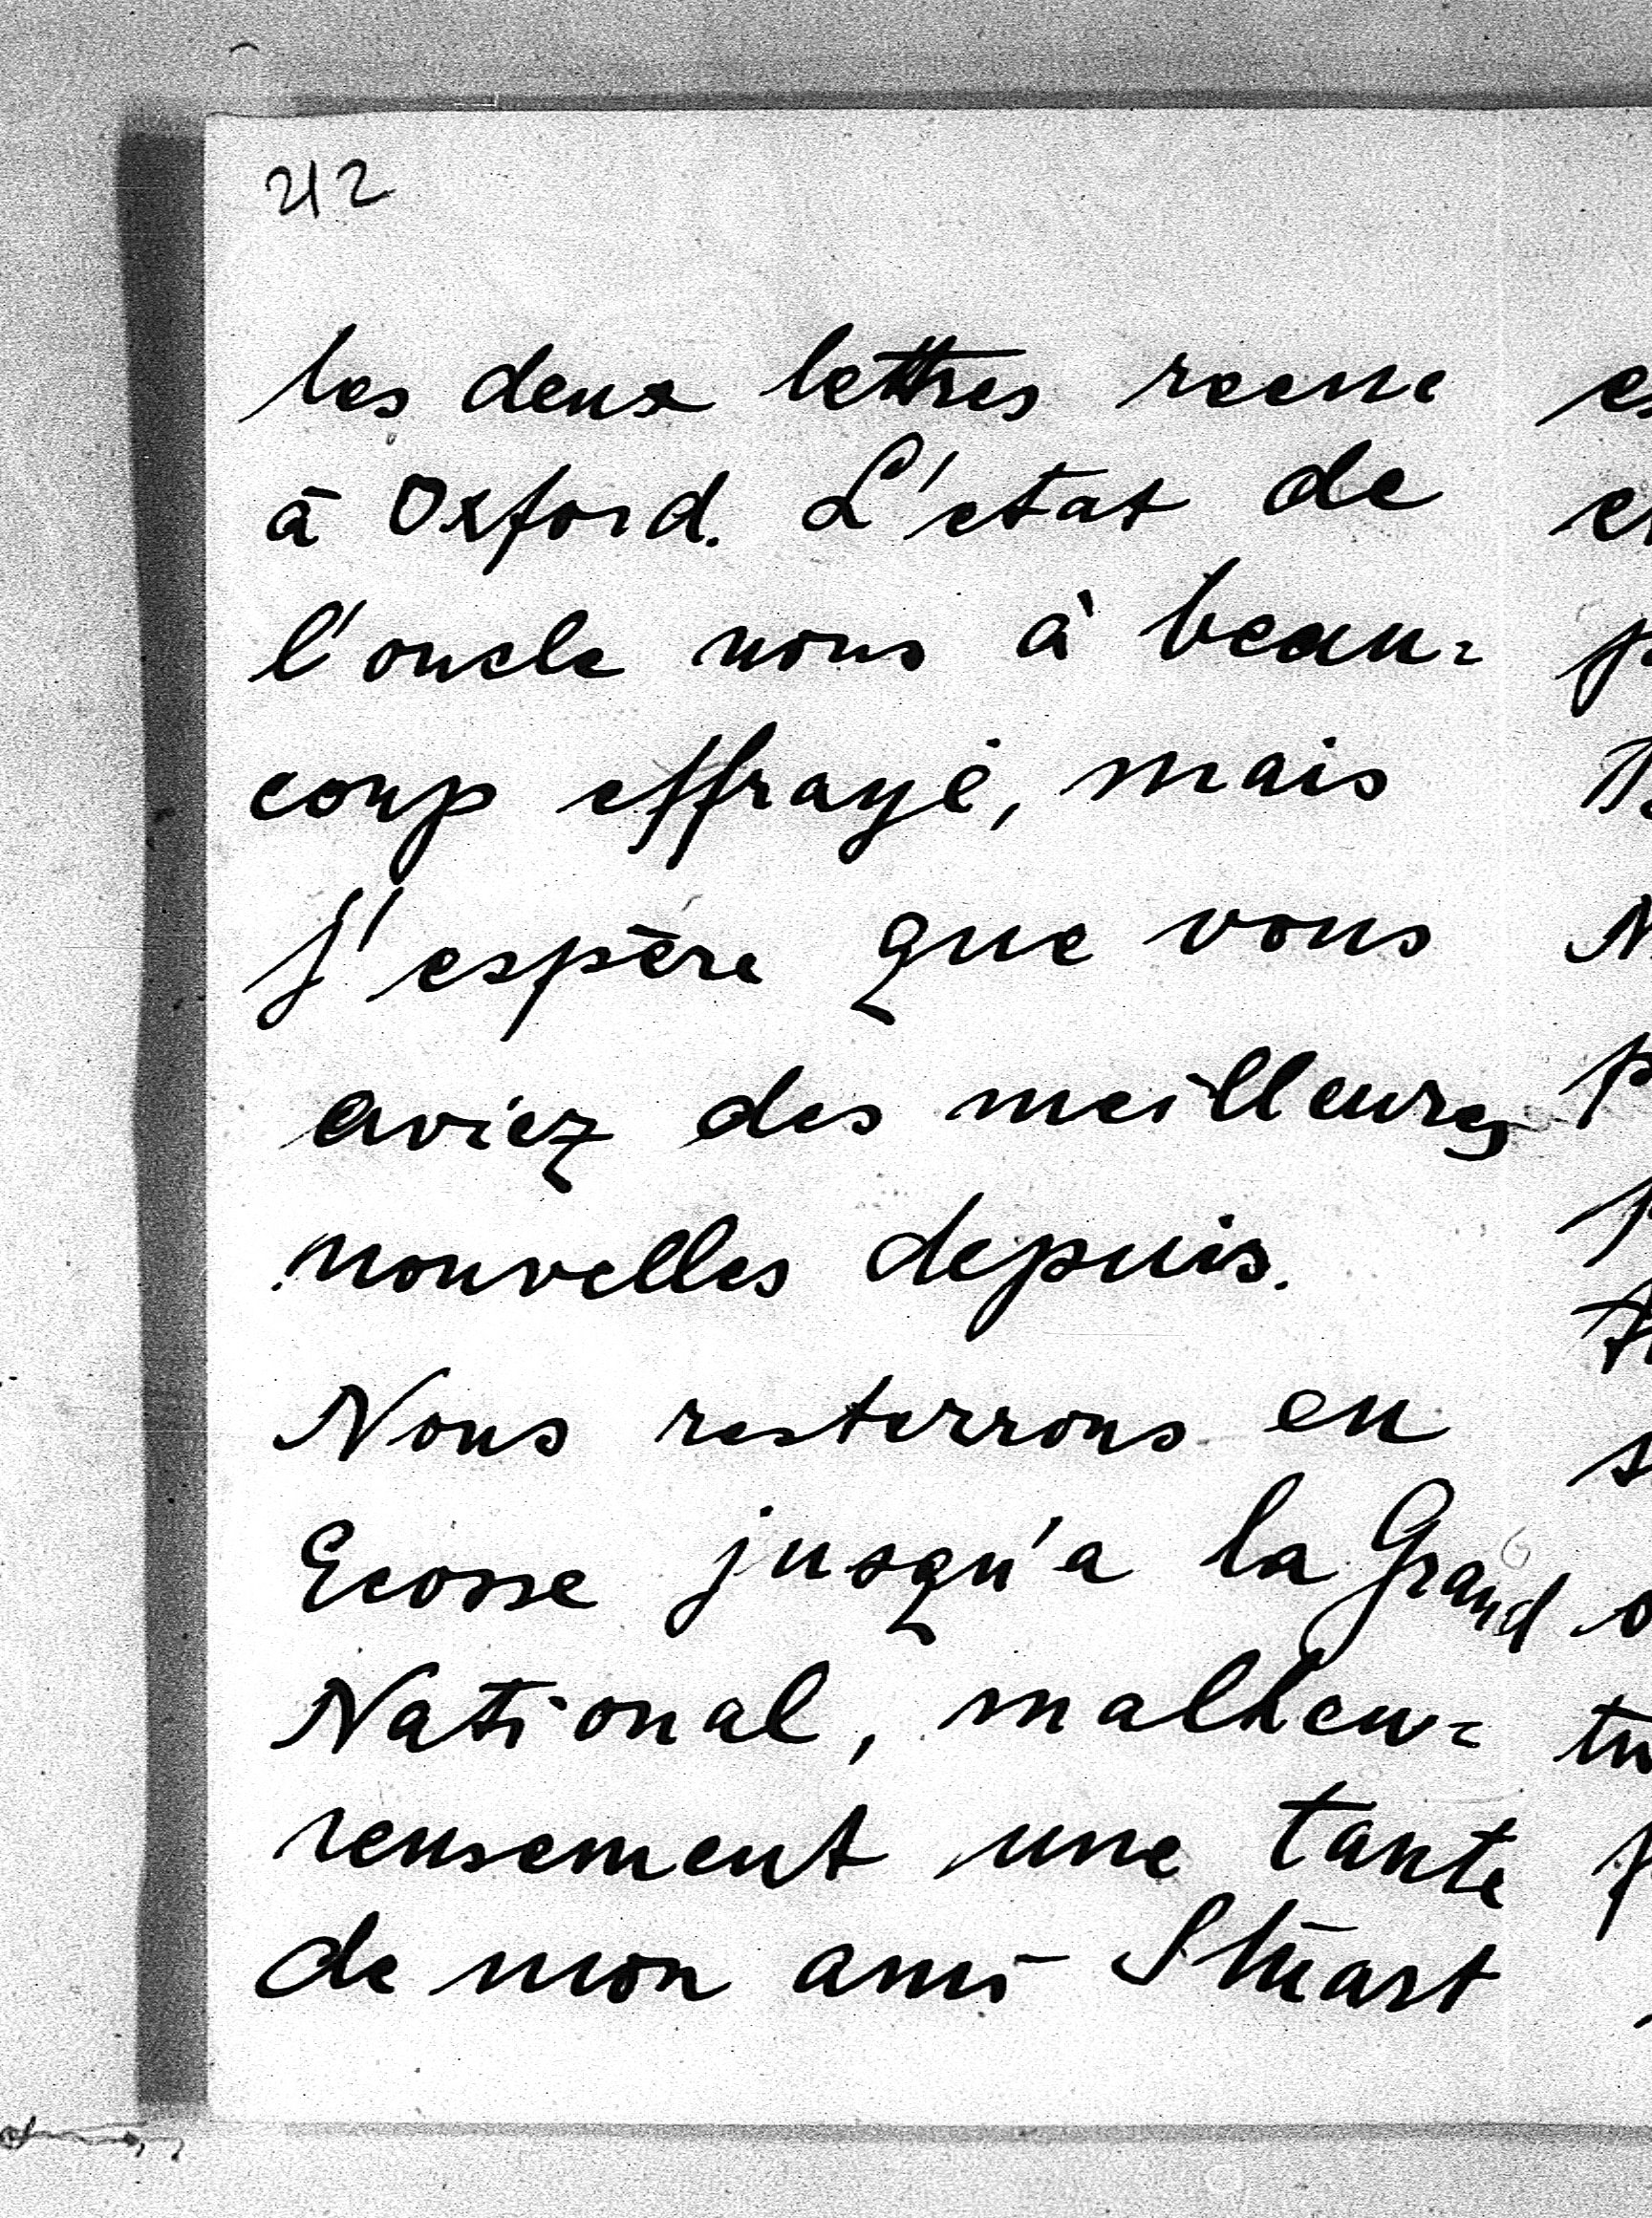 212
les deux lettres recue
à Oxford. L'etat de
l'oncle nous à beau=
coup effrayé, mais
j'espère que vous
aviez des meilleures
nouvelles depuis.
Nous resterrons en
Ecosse jusqu'a la Grand
National, malheu=
reusement une tante
de mon ami Stuart